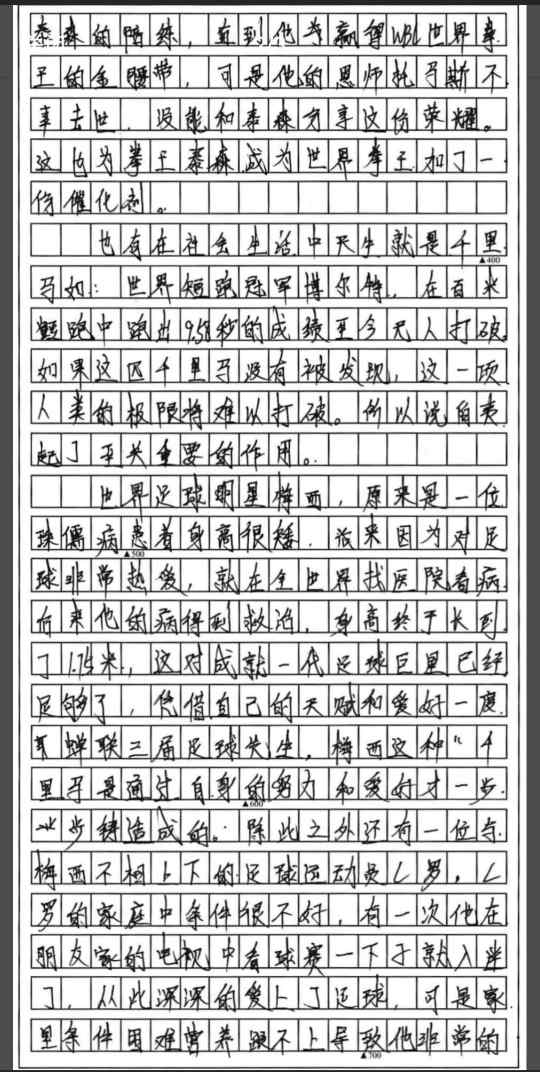 泰森的陪练，直到他夺赢得WBC世界拳
王的金腰带，可是他的恩师托马斯不
幸去世，没能和泰森分享这份荣耀。
这也为拳王泰森成为世界拳王加了一
份催化剂。
也有在社会生活中天生就是千里
▲400
马如：世界短跑冠军博尔特，在百米
短跑中跑出9.58秒的成绩至今无人打破。
如果这匹千里马没有被发现，这一项
人类的极限将难以打破。所以说伯乐
起了至关重要的作用。
世界足球明星梅西，原来是一位
珠儒病患者身高很矮，后来因为对足
▲500
球非常热爱，就在全世界找医院看病，
后来他的病得到救治，身高终于长到
了1.75米，这对成就一代足球巨星已经
足够了，凭借自己的天赋和爱好一度
蝉联三届足球先生，梅西这种“千
里马是通过自身的努力和爱好才一步
▲600
一步铸造成的。除此之外还有一位与
梅西不相上下的足球运动员C罗，C
罗的家庭中条件很不好，有一次他在
朋友家的电视中看球赛一下子就入迷
了，从此深深的爱上了足球，可是家
里条件困难营养跟不上导致他非常的
▲700